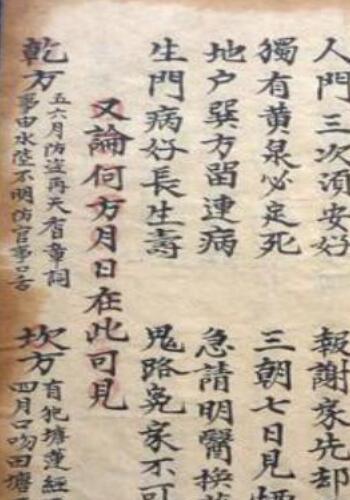 人門三次湏安好
報謝家先却
獨有黃泉必定死
三朝七日見
地户巽方留連病
急請明醫换
生門病好長生壽
鬼路冤家不可
又論何方月日在此可見
乾方
五六月防盗再天香章詞
事由水陸不明防官事口舌
坎方
有犯塘蓮經
四月口吻田塘